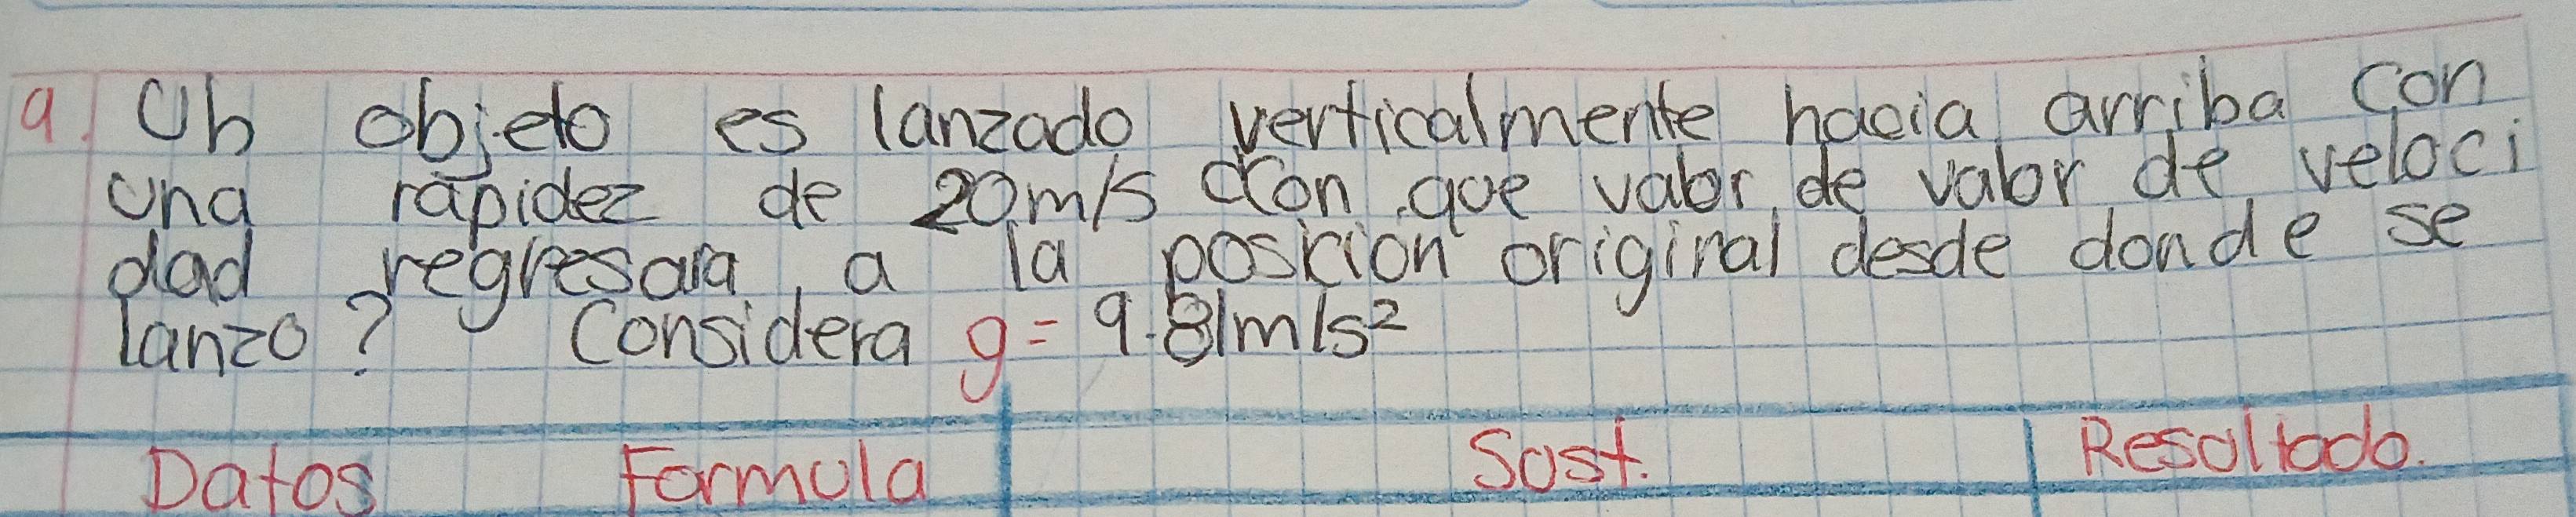 a. Un objeto es lanzado verticalmente hacia arriba con
una rapidez de 20m/s con que valor de valor de veloci
dad regresara a la posicion original desde donde se
lanzo? Considera g= 9.81m/s²
Datos Formula Sust. Resultado.